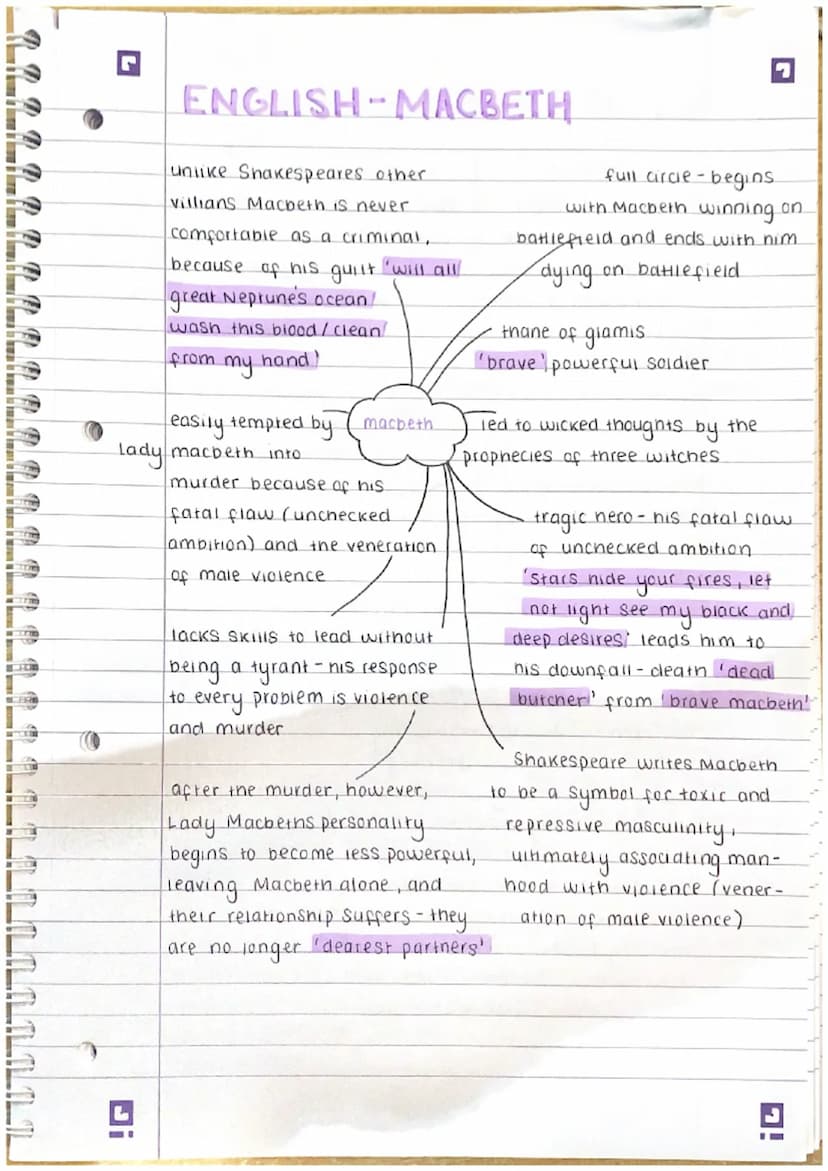 ENGLISH - MACBETH
unlike Shakespeares other
villians Macbeth is never
comfortable as a criminal,
because of his guilt 'will all
great Neptune's ocean/
wash this blood/clean
from my hand'
full circle - begins
with Macbeth winning on
battlefield and ends with him
dying on battlefield
thane of glamis
'brave' powerful soldier
macbeth
easily tempted by
Lady macbeth into
murder because of his
fatal flaw (unchecked
ambition) and the veneration
of male violence
led to wicked thoughts by the
prophecies of three witches
tragic hero - his fatal flaw
of unchecked ambition
'stars hide your fires, let
not light see my black and
deep desires' leads him to
his downfall - death 'dead
butcher' from 'brave macbeth'
lacks skills to lead without
being a tyrant - his response
to every problem is violence
and murder
Shakespeare writes Macbeth
to be a symbol for toxic and
repressive masculinity,
ultimately associating man-
hood with violence (vener-
ation of male violence)
after the murder, however,
Lady Macbeths personality
begins to become less powerful,
leaving Macbeth alone, and
their relationship suffers - they
are no longer 'dearest partners'